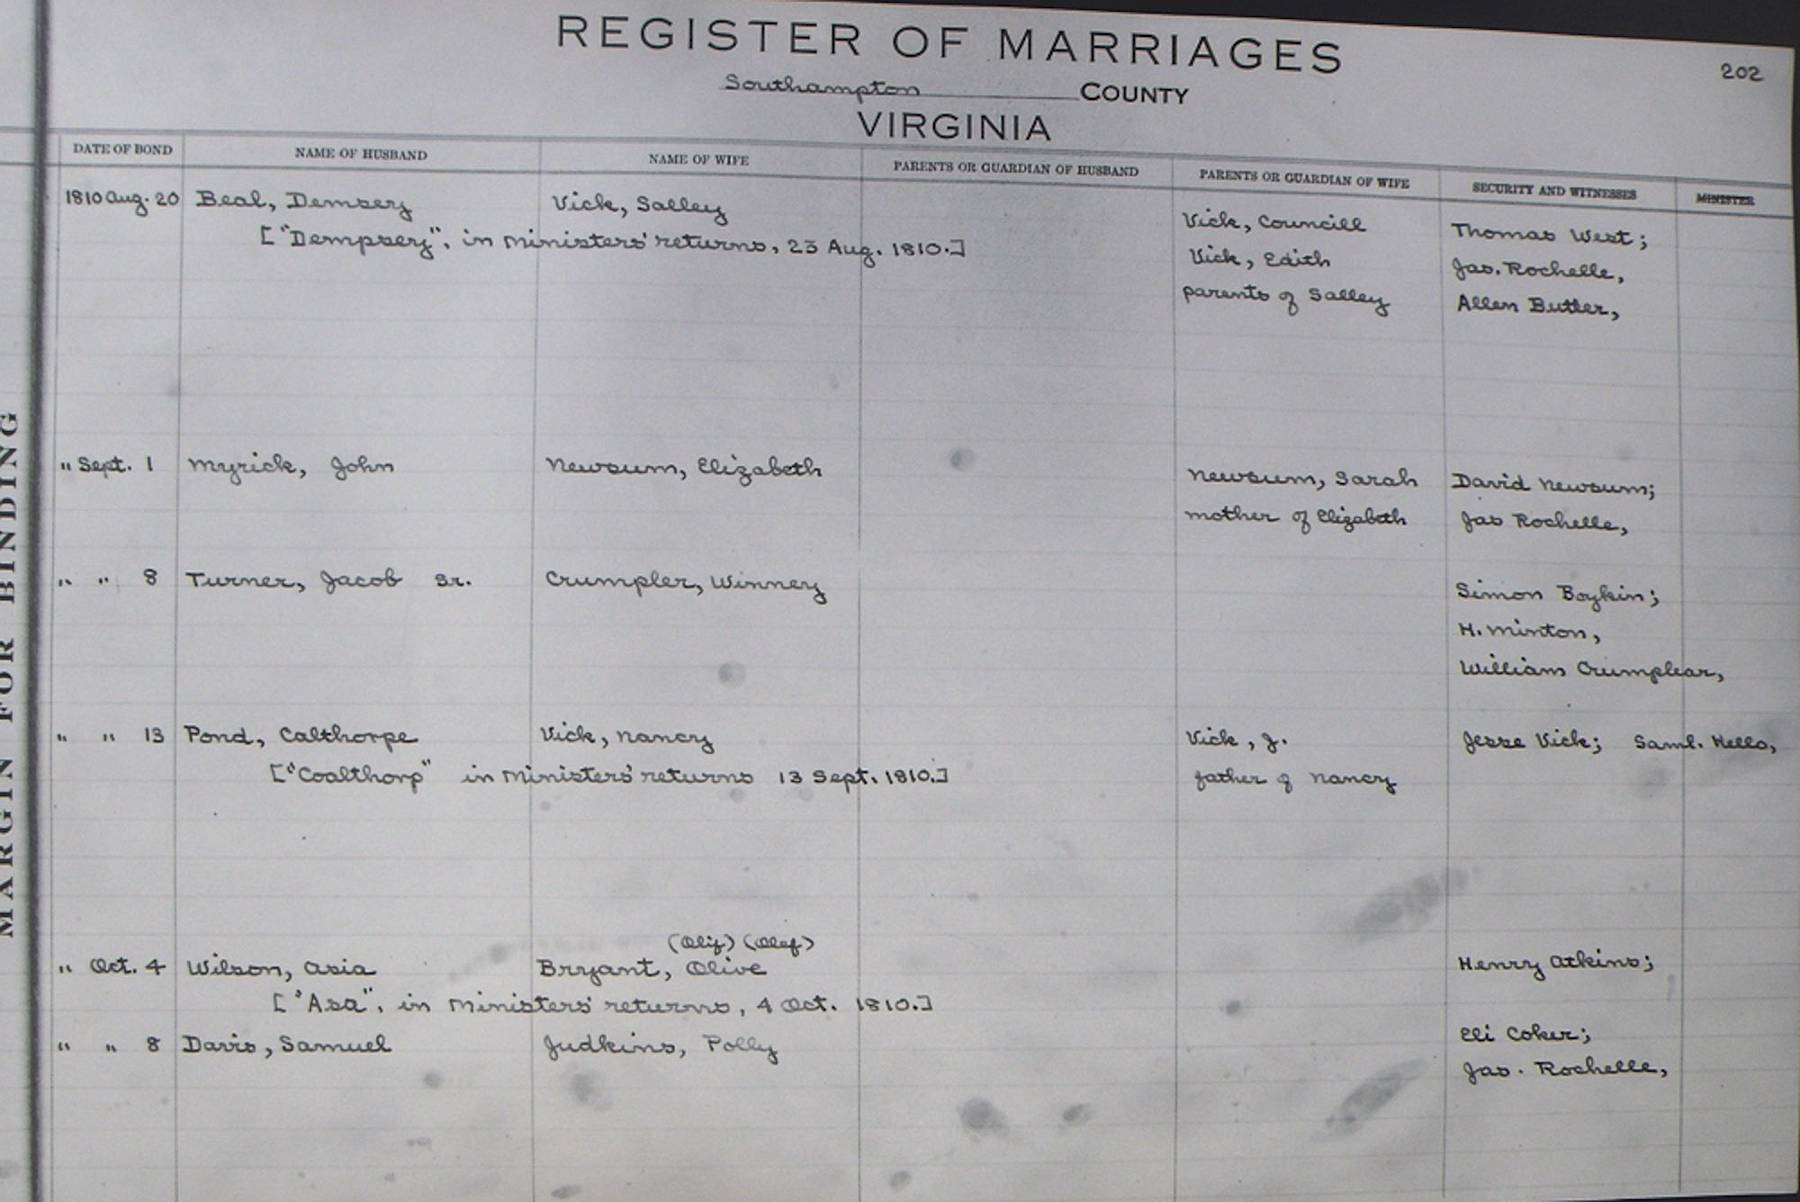 REGISTER OF MARRIAGES
202
Southampton COUNTY
VIRGINIA
DATE OF BOND NAME OF HUSBAND NAME OF WIFE PARENTS OR GUARDIAN OF HUSBAND PARENTS OR GUARDIAN OF WIFE SECURITY AND WITNESSES MINISTER
1810 Aug. 20 Beal, Demsey Vick, Salley Vick, Councill Thomas West;
["Dempsey", in ministers' returns, 23 Aug. 1810.] Vick, Edith Jas. Rochelle,
parents of Salley Allen Butler,
" Sept. 1 Myrick, John Newsum, Elizabeth Newsum, Sarah David Newsum;
mother of Elizabeth Jas Rochelle,
" " 8 Turner, Jacob Sr. Crumpler, Winney Simon Boykin;
H. Minton,
William Crumplear,
" " 13 Pond, Calthorpe Vick, Nancy Vick, J. Jesse Vick; Saml. Hello,
["Coalthorp" in ministers' returns 13 Sept. 1810.] father of Nancy
(Olif) (Olef)
" Oct. 4 Wilson, Asia Bryant, Olive Henry Atkins;
["Asa", in ministers' returns, 4 Oct. 1810.]
" " 8 Davis, Samuel Judkins, Polly Eli Coker;
Jas. Rochelle,
MARGIN FOR BINDING